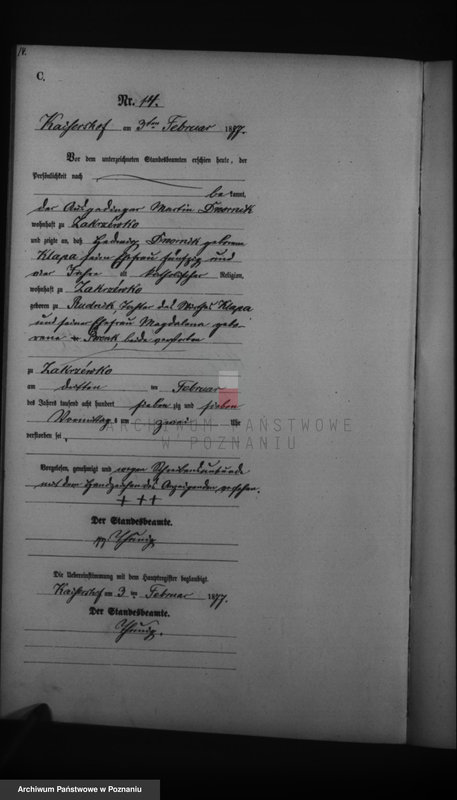 14.
C.
Nr. 14.
Kaisershof am 3ten Februar 1877.
Vor dem unterzeichneten Standesbeamten erschien heute, der
Persönlichkeit nach
be kannt,
der Ausgedinger Martin Dwornik
wohnhaft zu Zakrzewko
und zeigte an, daß Hedwig Dwornik geborene
Klapa seine Ehefrau fünfzig und
vier Jahre alt katholischer Religion,
wohnhaft zu Zakrzéwko
geboren zu Rudnik, Tochter des Klapa
und seiner Ehefrau Magdalena gebo-
rene beide verstorben
zu Zakrzéwko
am dritten ten Februar
des Jahres tausend acht hundert sieben zig und sieben
Vormittags um zwei Uhr
verstorben sei,
Vorgelesen, genehmigt und wegen Schreibensunkunde
mit dem Handzeichen des Anzeigenden versehen.
+ + +
Der Standesbeamte.
Die Uebereinstimmung mit dem Hauptregister beglaubigt.
Kaisershof am 3 ten Februar 1877.
Der Standesbeamte.
ARCHIWUM PAŃSTWOWE
W POZNANIU
Archiwum Państwowe w Poznaniu